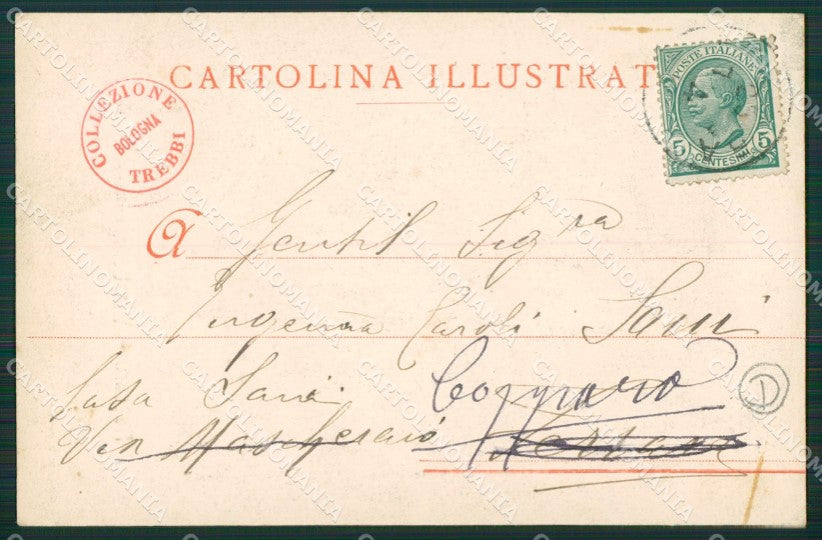 CARTOLINA ILLUSTRAT
COLLEZIONE TREBBI
BOLOGNA
POSTE ITALIANE
5 CENTESIMI 5
A Gentil Sig.ra
Caroli Sani
Casa Sani
Via Mascheraio
D
CARTOLINOMANIA